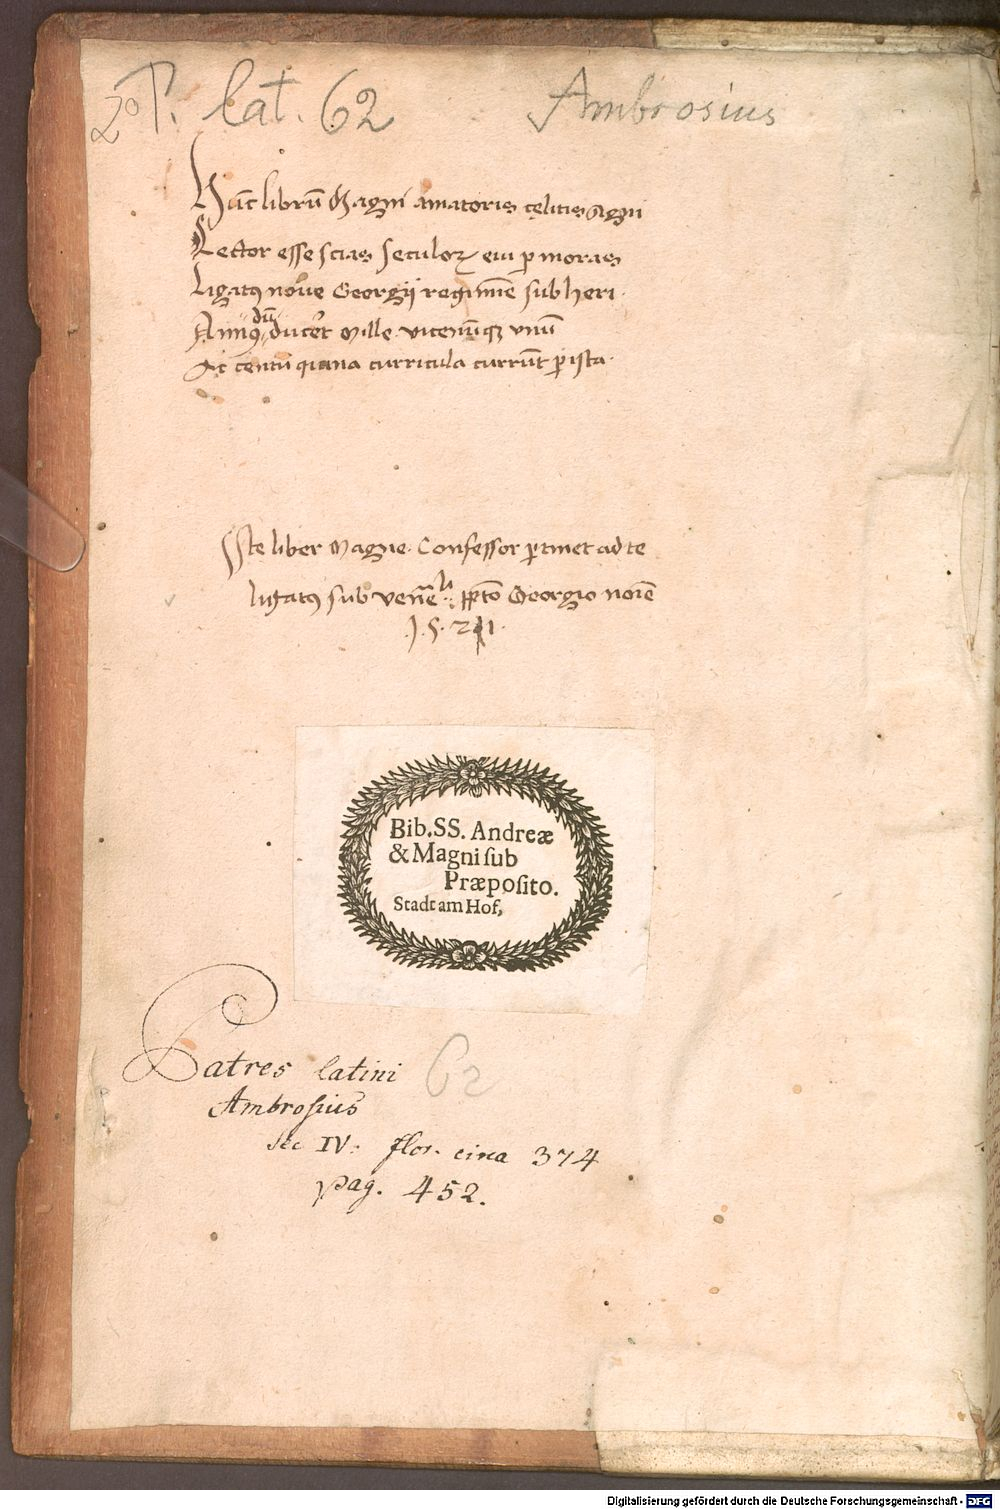 2° P. lat. 62
Ambrosius
Hūc librū Magni amatoris celitis Agni
Lector esse scias seculoꝝ eui p moras
Ligatꝰ noūe Georgij regimīe sub heri
dū
Annꝰ ducēt Mille vicenūqꝫ vnū
Ac centū quina curricula currūt p ista
Iste liber Magne Confessor ptinet ad te
ligatꝰ sub Georgio noīe
1.5.21
Bib. SS. Andreæ
& Magni ſub
Præpoſito.
Stadt am Hof,
Patres latini 62
Ambroſius
sec IV. flor. circa 374
pag. 452.
Digitalisierung gefördert durch die Deutsche Forschungsgemeinschaft - DFG